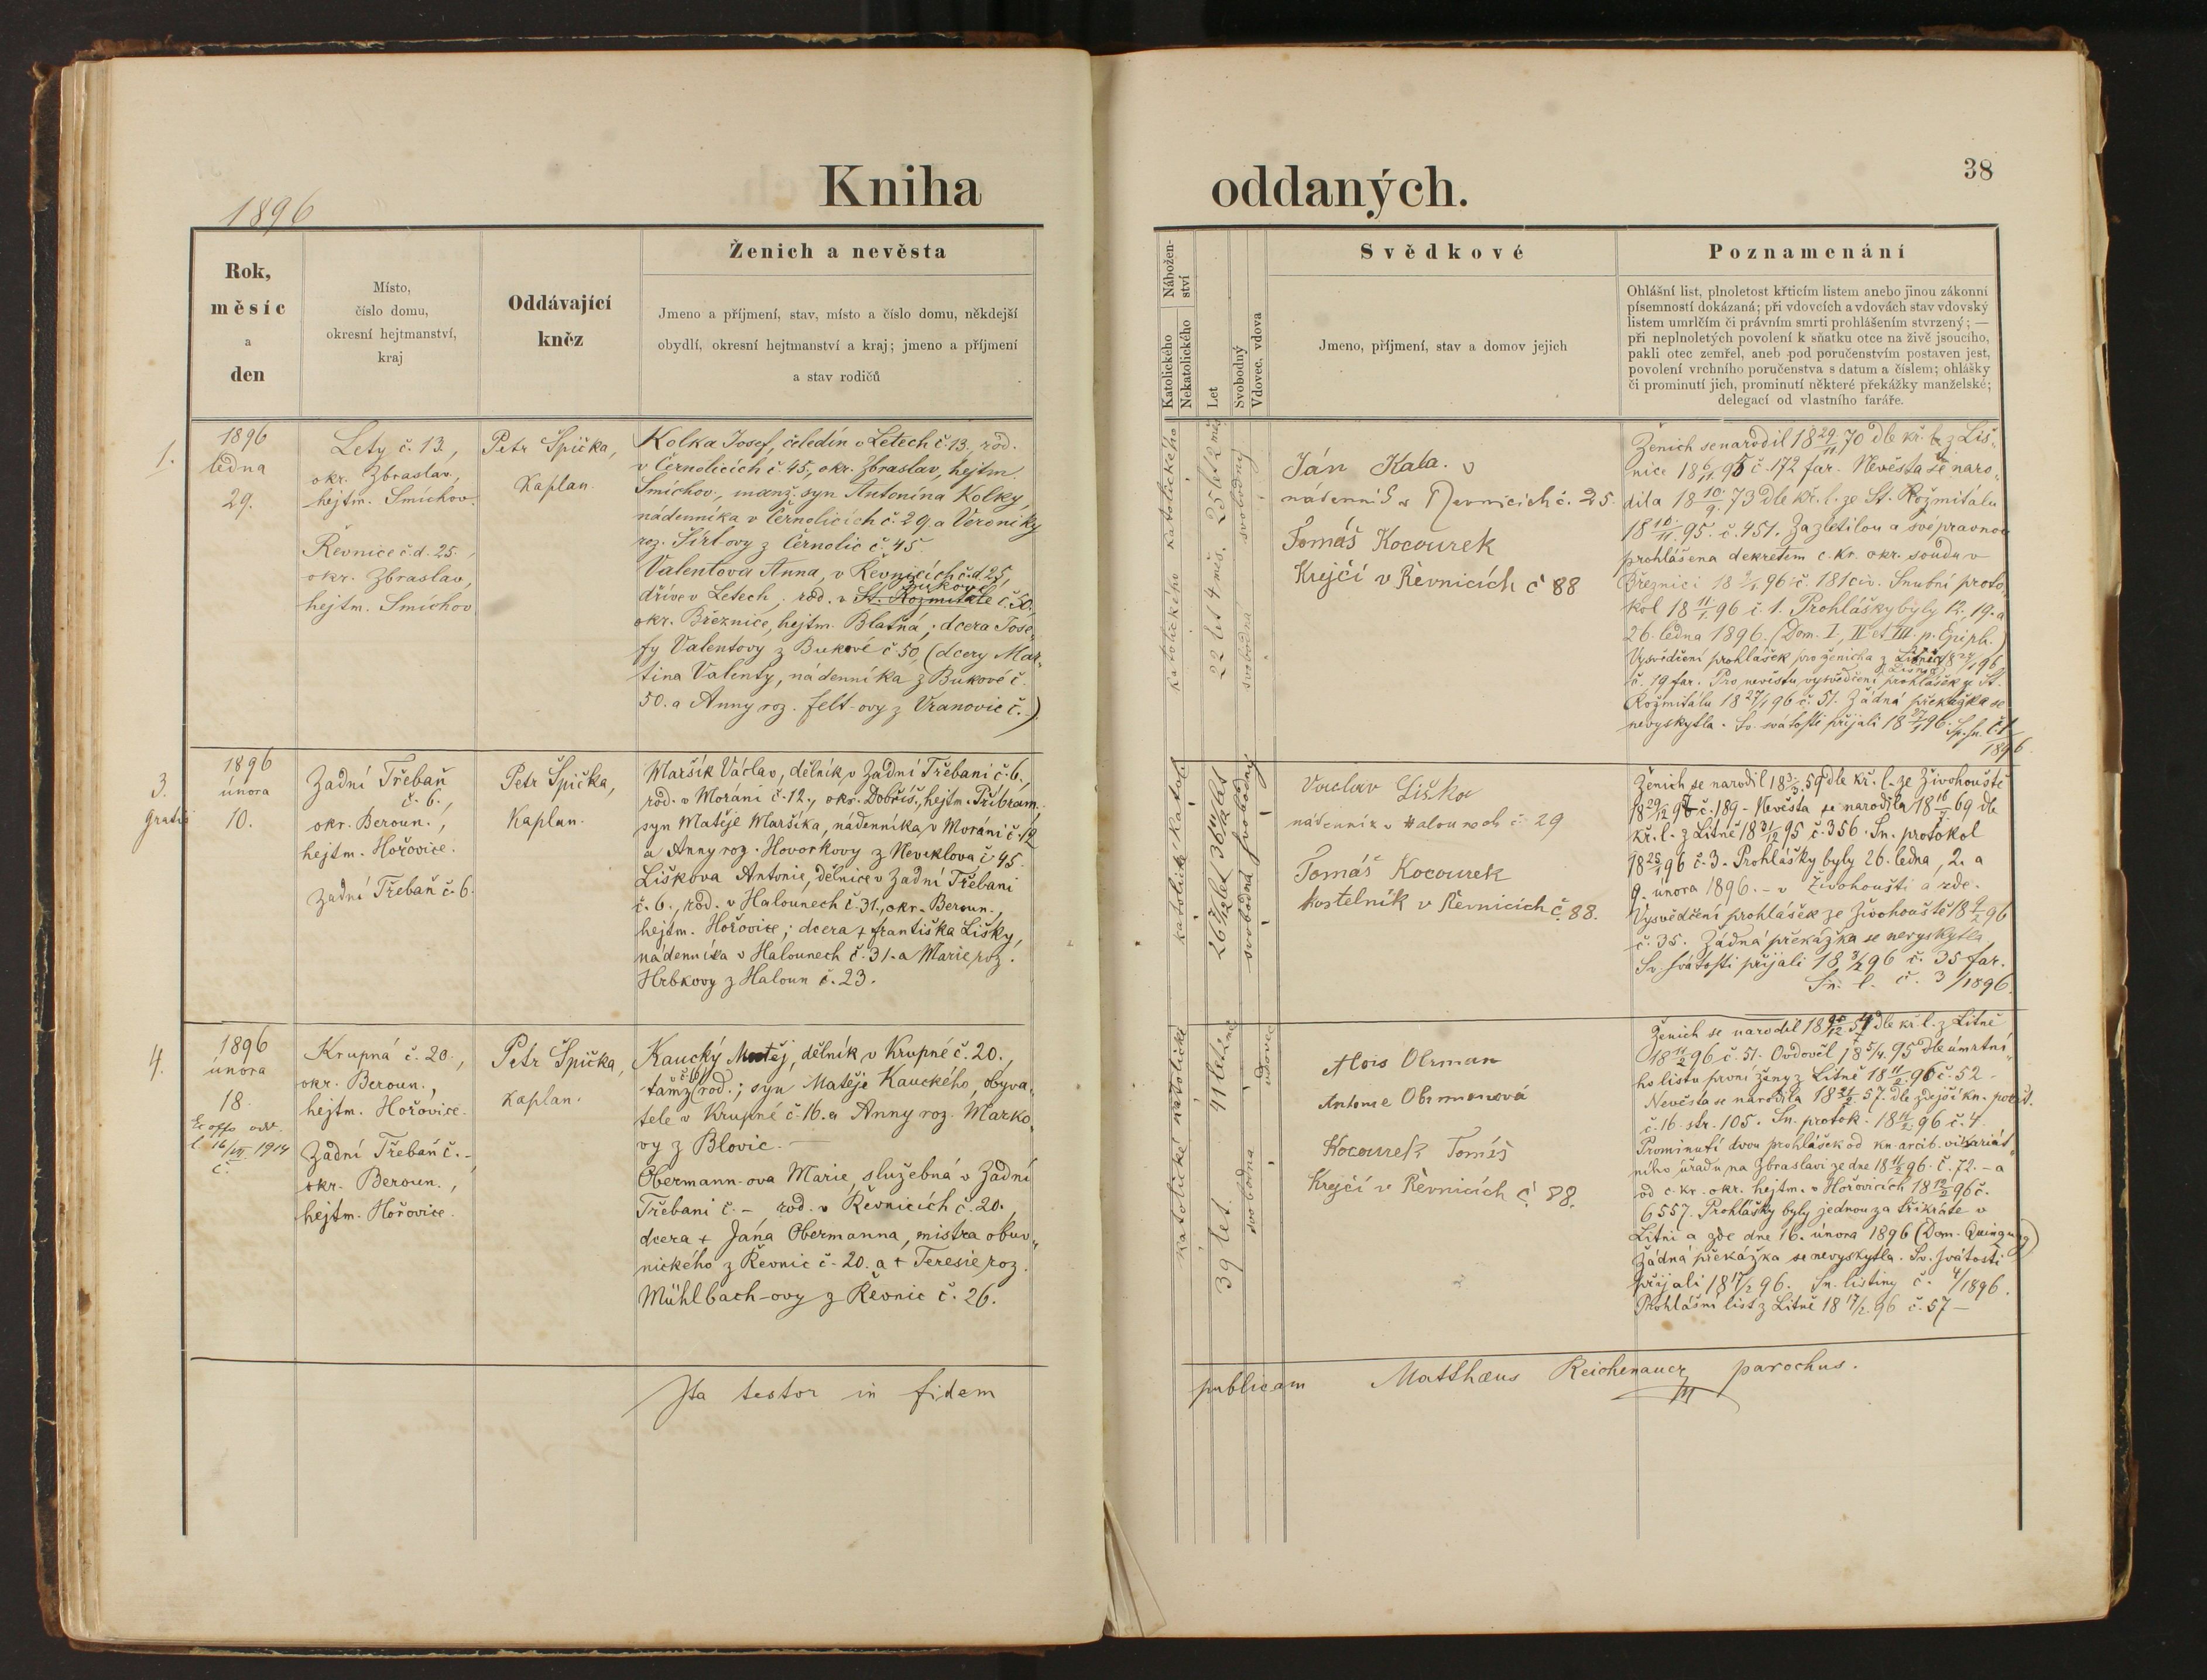 Kniha
oddaných.
38
1896
Rok,
měsíc
a
den
Místo,
číslo domu,
okresní hejtmanství,
kraj
Oddávající
kněz
Ženich a nevěsta
Jmeno a příjmení, stav, místo a číslo domu, někdejší
obydlí, okresní hejtmanství a kraj; jmeno a příjmení
a stav rodičů
Nábožen-
ství
Katolického
Nekatolického
Let
Svobodný
Vdovec. vdova
Svědkové
Jmeno, příjmení, stav a domov jejich
Poznamenání
Ohlášní list, plnoletost křticím listem anebo jinou zákonní
písemností dokázaná; při vdovcích a vdovách stav vdovský
listem umrlčím či právním smrti prohlášením stvrzený; —
při neplnoletých povolení k sňatku otce na živě jsoucího,
pakli otec zemřel, aneb pod poručenstvím postaven jest,
povolení vrchního poručenstva s datum a číslem; ohlášky
či prominutí jich, prominutí některé překážky manželské;
delegací od vlastního faráře.
1.
1896
ledna
29.
Lety č. 13.,
okr. Zbraslav,
hejtm. Smíchov.
Řevnice č.d. 25.
okr. Zbraslav,
hejtm. Smíchov
Petr Špička,
Kaplan.
Kolka Josef, čeledín v Letech č. 13, rod.
v Černolicích č. 45, okr. Zbraslav, hejtm.
Smíchov., manž. syn Antonína Kolky,
nádenníka v Černolicích č. 29. a Veroniky
roz. Šírlovy z Černolic č. 45.
Valentova Anna, v Řevnicích č.d. 25,
Bukové
dříve v Letech, rod. v St. Rozmitále č. 50.
okr. Březnice, hejtm. Blatná; dcera Jose-
fy Valentovy z Bukové č 50, (dcery Mar-
tina Valenty, nádenníka z Bukové č.
50. a Anny roz. Felt-ovy z Vranovic č. -)
katolického katolického
22 let 4 měs. 25 let 2 měs
svobodná svobodný
Ján Kala. v
nádenník v Řevnicích č. 25.
Tomáš Kocourek
Krejčí v Řevnicích č 88
Ženich se narodil 18 29/11 70 dle kř. l. z Liš-
nice 18 6/11 95 č. 172 far. Nevěsta se naro-
dila 18 10/9 73 dle kř. l. ze St. Rožmitálu
18 16/11 95. č. 451. Za zletilou a svéprávnou
prohlášena dekretem c. kr. okr. soudu v
Březnici 96 č. 181 civ. Snubní proto-
kol 18 11/1 96 č. 1. Prohlášky byly 12., 19. a
26. ledna 1896. (Dom. I, II et III. p. Epiph.)
Vysvědčení prohlášek pro ženicha z Lišnice 18 27/1 96
č. 19 far. Pro nevěstu vysvědčení prohlášek z St.
Rožmitálu 18 27/1 96 č. 51. Žádná překážka se
nevyskytla. Sv. svátosti přijali 18 27/1 96. Sp. sn. č. 1/
1896
3.
gratis
1896
února
10.
Zadní Třebaň
č. 6.,
okr. Beroun.,
hejtm. Hořovice.
Zadní Třebaň č. 6.
Petr Špička,
Kaplan.
Maršík Václav, dělník v Zadní Třebani č. 6.,
rod. v Moráni č. 12., okr. Dobříš, hejtm. Příbram.
syn Matěje Maršíka, nádenníka v Moráni č. 12
a Anny roz. Hovorkovy z Neveklova č. 45.
Liškova Antonie, dělnice v Zadní Třebani
č. 6., rod. v Halounech č. 31., okr. Beroun.,
hejtm. Hořovice; dcera + Františka Lišky,
nádenníka v Halounech č. 31. a Marie roz.
Hrbkovy z Haloun č. 23.
svobodná svobodný
Vaclav Liška
nádenník v Halounech č. 29
Tomáš Kocourek
kostelník v Řevnicích č. 88.
Ženich se narodil 18 3/3 59 dle kř. l. ze Živohouště
18 29/12 95 č. 189 - Nevěsta se narodila 18 16/7 69 dle
kř. l. z Litně 18 31/12 95 č. 356. Sn. protokol
18 25/1 96 č. 3. Prohlášky byly 26. ledna, 2. a
9. února 1896. - v Živohoušti a zde.
Vysvědčení prohlášek ze Živohouště 18 9/2 96
č. 35. Žádná překážka se nevyskytla.
Sv. svátosti přijali 18 8/2 96 č. 35 far.
Sn. l. č. 3/1896.
4.
1896
února
18.
Ex offo odd.
l. 16/VII 1914
č.
Krupná č. 20.,
okr. Beroun.,
hejtm. Hořovice.
Zadní Třebaň č. -
okr. Beroun.,
hejtm. Hořovice.
Petr Špička,
Kaplan.
Kaucký Matěj, dělník v Krupné č. 20.,
tamž rod.; syn Matěje Kauckého, obyva-
tele v Krupné č. 16. a Anny roz. Marko-
vy z Blovic. —
Obermann-ova Marie, služebná v Zadní
Třebani č. - rod. v Řevnicích č. 20.,
dcera + Jána Obermanna, mistra obuv-
nického z Řevnic č. 20. a + Teresie roz.
Mühlbach-ovy z Řevnic č. 26.
katolické katolické
39 let. 41 let
svobodná
vdovec
Alois Obrman
Antonie Obrmanová
Kocourek Tomáš
Krejčí v Řevnicích č. 88.
Ženich se narodil dle kř. l. z Litně
18 11/2 96 č. 51. Ovdověl 18 5/4. 95 dle úmrtní-
ho listu první ženy z Litně 18 11/2 96 č. 52.
Nevěsta se narodila 18 21/2 57. dle zdejší kn. pokřt.
č. 16. str. 105. Sn. protok. 18 11/2 96 č. 4.
Prominutí dvou prohlášek od kn. arcib. vikariát-
ního úřadu na Zbraslavi ze dne 18 11/2 96. č. 72. - a
od c. kr. okr. hejtm. v Hořovicích 18 12/2 96 č.
6557. Prohlášky byly jednou za třikráte v
Litni a zde dne 16. února 1896 (Dom. Quinquag)
Žádná překážka se nevyskytla. Sv. svátosti
přijali 18 17/2 96. Sn. listiny č. 4/1896.
Prohlášní list z Litně 18 17/2. 96 č. 57 —
Ita testor in fidem
publicam Matthæus Reichenauer parochus.